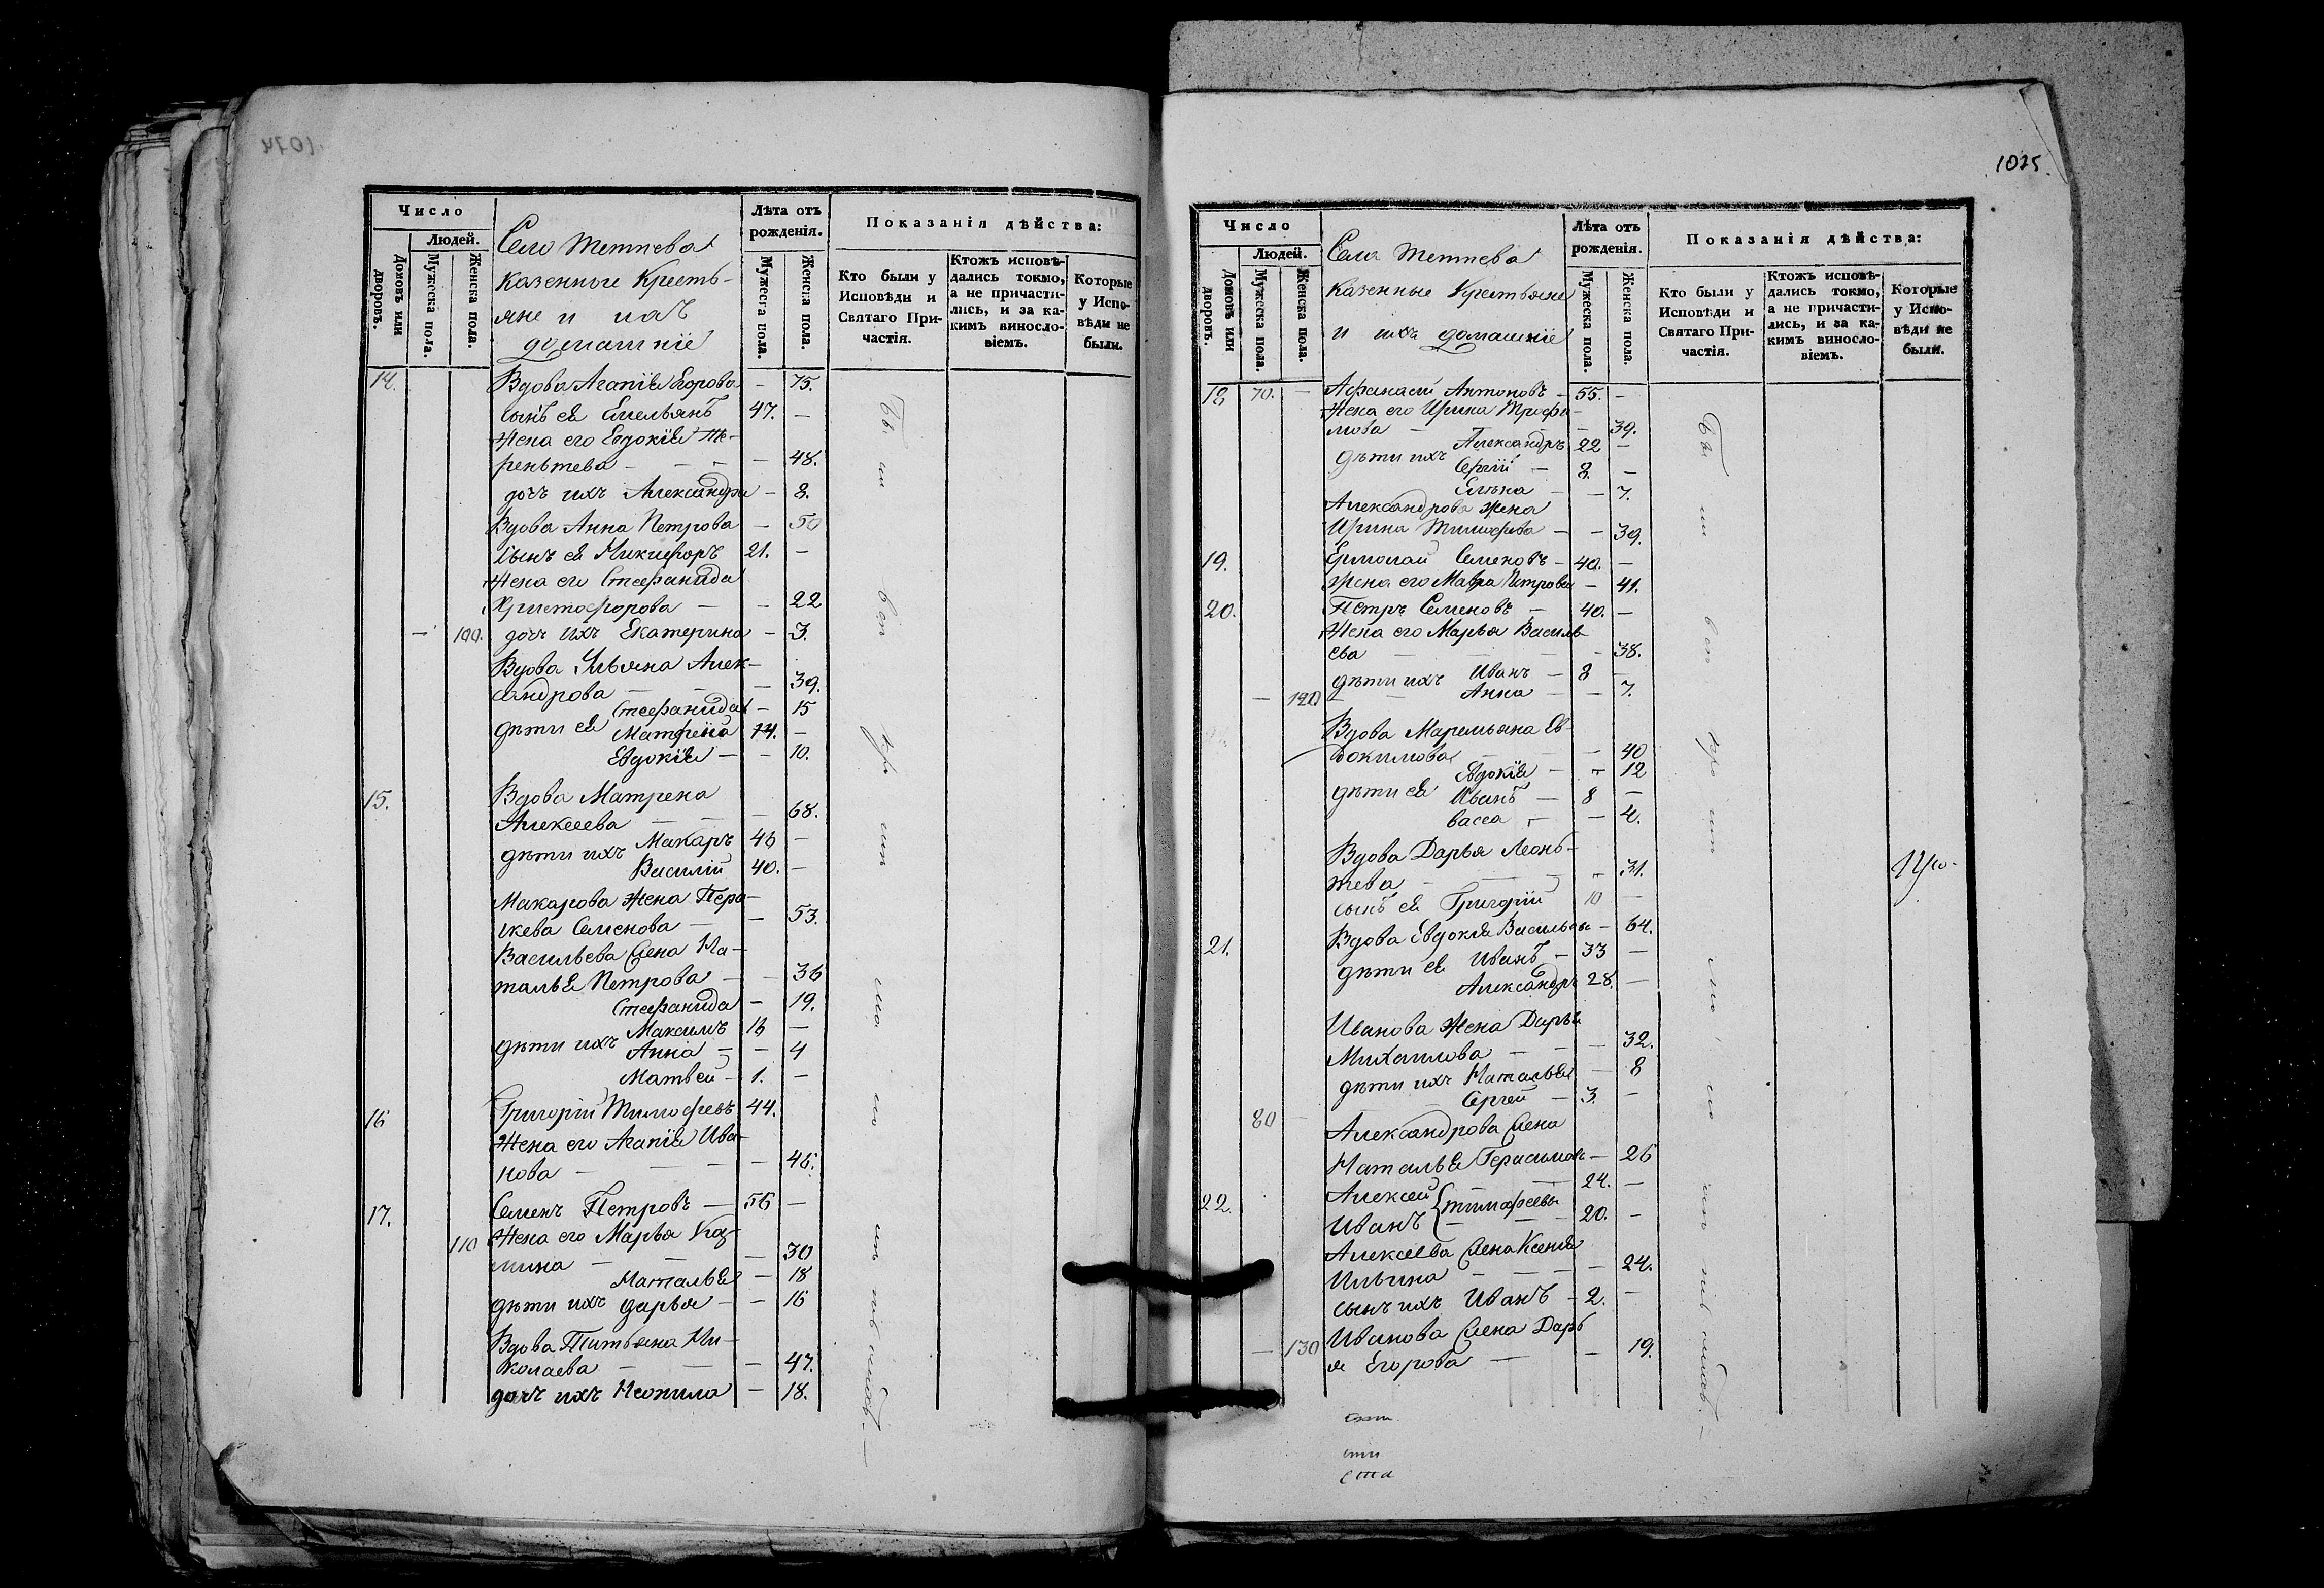 1074
Число
Людей.
Домовъ или дворовъ.
Мужеска пола.
Женска пола.
Село Тетнева
казенные Кресть-
яне и ихъ
домашніе
Лѣта отъ рожденія.
Мужеска пола.
Женска пола.
Показанія дѣйства:
Кто были у Исповѣди и Святаго Причастія.
Ктожъ исповѣдались токмо, а не причастились, и за какимъ винословіемъ.
Которые у Исповѣди не были.
14. Вдова Агапія Егорова - 75.
сынъ ея Емельянъ 47. -
Жена его Евдокія Те-
рентева - - - - 48.
дочь ихъ Александра - 8.
Вдова Анна Петрова - 50
Сынъ ея Никифоръ 21. -
Жена его Стефанида
Христофорова - - 22
- 100. дочь ихъ Екатерина - 3.
Вдова Ульяна Алек-
сандрова - - - 39.
Стефанида - 15
дѣти ея Матфена 14. -
Евдокія - - 10.
15. Вдова Матрена
Алексеева - - - 68.
дѣти ихъ Макаръ 46 -
Василій 40. -
Макарова Жена Пера-
скева Семенова - - 53.
Васильева Жена На-
талья Петрова - - 36
Стефанида - 19.
дѣти ихъ Максимъ 16 -
Анна - - 4
Матвей - 1. -
16 Григорій Тимофевъ 44.
Жена его Агапія Ива-
нова - - - - 46.
17. Семенъ Петровъ - 56 -
110 Жена его Марья Куз-
мина - - - 30
Наталья - 18
дѣти ихъ дарья - - 16
Вдова Татьяна Ни-
колаева - - - 47.
дочь ихъ Неонила - 18.
1075.
Число
Людей.
Домовъ или дворовъ.
Мужеска пола.
Женска пола.
Села Тетнева
казенные Крестьяне
и ихъ домашніе
Лѣта отъ рожденія.
Мужеска пола.
Женска пола.
Показанія дѣйства:
Кто были у Исповѣди и Святаго Причастія.
Ктожъ исповѣдались токмо, а не причастились, и за какимъ винословіемъ.
Которые у Исповѣди не были.
18 70. - Афанасій Антоновъ - 55. -
Жена его Ирина Трофи-
мова - - - - 39.
Александръ 22 -
дѣти ихъ Сергій - 8. -
Елѣна - - 7.
Александрова Жена
Ирина Тимофева - - 39.
19. Ермолай Семеновъ - 40. -
Жена его Мавра Петрова - 41.
20. Петръ Семеновъ - 40. -
Жена его Марья Василь-
ева - - - - 38.
дѣти ихъ Иванъ - 8 -
- 120 - - Анна - - 7.
Вдова Маремьяна Ев-
докимова - - - 40
Евдокія - - 12
дѣти ея Иванъ - 8 -
васса - - 4.
Вдова Дарья Леонь-
тева - - - - 31.
сынъ ея Григорій 10 -
21. Вдова Евдокія Васильева - 64.
дѣти ея Иванъ - 33 -
Александръ 28. -
Иванова Жена Дарья
Михаилова - - - 32.
дѣти ихъ Наталья - 8
Сергей - 3. -
80 - Александрова Жена
Наталья Герасимова - 26
22. Алексей - 24. -
Тимофеевы
Иванъ - - - 20. -
Алексеева Жена Ксенія
Ильина - - - - 24.
сынъ ихъ Иванъ - 2. -
- 130 Иванова Жена Дарь
я Егорова - - 19.